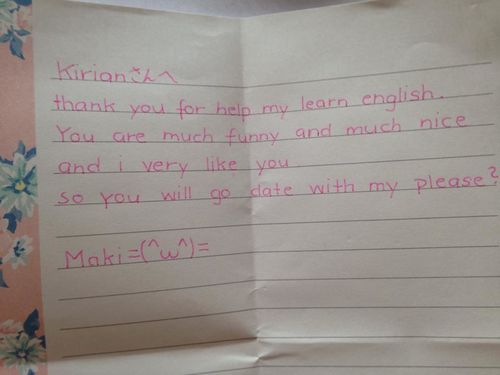 Kirianさんへ
thank you for help my learn english.
You are much funny and much nice
and i very like you.
so you will go date with my please?
Maki=(^w^)=